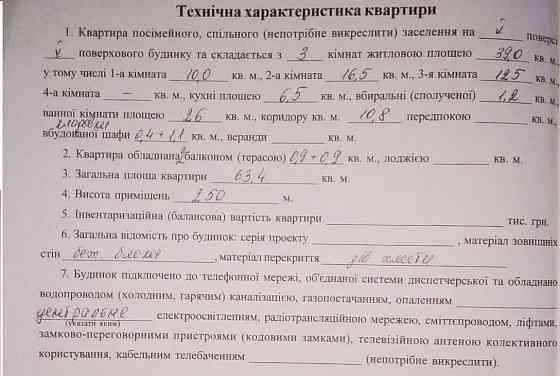 Технічна характеристика квартири
1. Квартира посімейного, спільного (непотрібне викреслити) заселення на V поверсі
V поверхового будинку та складається з 3 кімнат житловою площею 39,0 кв. м.,
у тому числі 1-а кімната 10,0 кв. м., 2-а кімната 16,5 кв. м., 3-я кімната 12,5 кв. м.,
4-а кімната — кв. м., кухні площею 6,5 кв. м., вбиральні (сполученої) 1,2 кв. м.,
ванної кімнати площею 2,6 кв. м., коридору кв. м. 10,8 передпокою кв. м.,
вбудованої шафи 0,4 + 1,1 кв. м., веранди кв. м.
2. Квартира обладнана 2 балконом (терасою) 0,9 + 0,9 кв. м., лоджією кв. м.
3. Загальна площа квартири 63,4 кв. м.
4. Висота приміщень 2,50 м.
5. Інвентаризаційна (балансова) вартість квартири тис. грн.
6. Загальна відомість про будинок: серія проекту , матеріал зовнішніх
стін , матеріал перекриття з/б
7. Будинок підключено до телефонної мережі, об'єднаної системи диспетчерської та обладнано
водопроводом (холодним, гарячим) каналізацією, газопостачанням, опаленням
центральне електроосвітленням, радіотрансляційною мережею, сміттєпроводом, ліфтами,
(указати яким)
замково-переговорними пристроями (кодовими замками), телевізійною антеною колективного
користування, кабельним телебаченням (непотрібне викреслити).